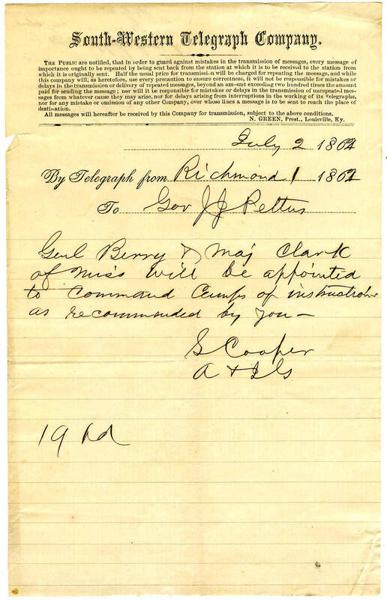 South-Western Telegraph Company.
THE PUBLIC are notified, that in order to guard against mistakes in the transmission of messages, every message of
importance ought to be repeated by being sent back from the station at which it is to be received to the station from
which it is originally sent. Half the usual price for transmission will be charged for repeating the message, and while
this company will, as heretofore, use every precaution to ensure correctness, it will not be responsible for mistakes or
delays in the transmission or delivery of repeated messages, beyond an amount exceeding two hundred times the amount
paid for sending the message; nor will it be responsible for mistakes or delays in the transmission of unrepeated mes-
sages from whatever cause they may arise, nor for delays arising from interruptions in the working of its Telegraphs,
nor for any mistake or omission of any other Company, over whose lines a message is to be sent to reach the place of
destination.
All messages will hereafter be received by this Company for transmission, subject to the above conditions.
N. GREEN, Prest., Louisville, Ky.
July 2 1862
By Telegraph from Richmond 1 1862
To Gov J J Pettus
Genl Berry & Maj Clark
of Miss will be appointed
to command Camps of instruction
as recommended by you —
S Cooper
A & I G
19 Pd